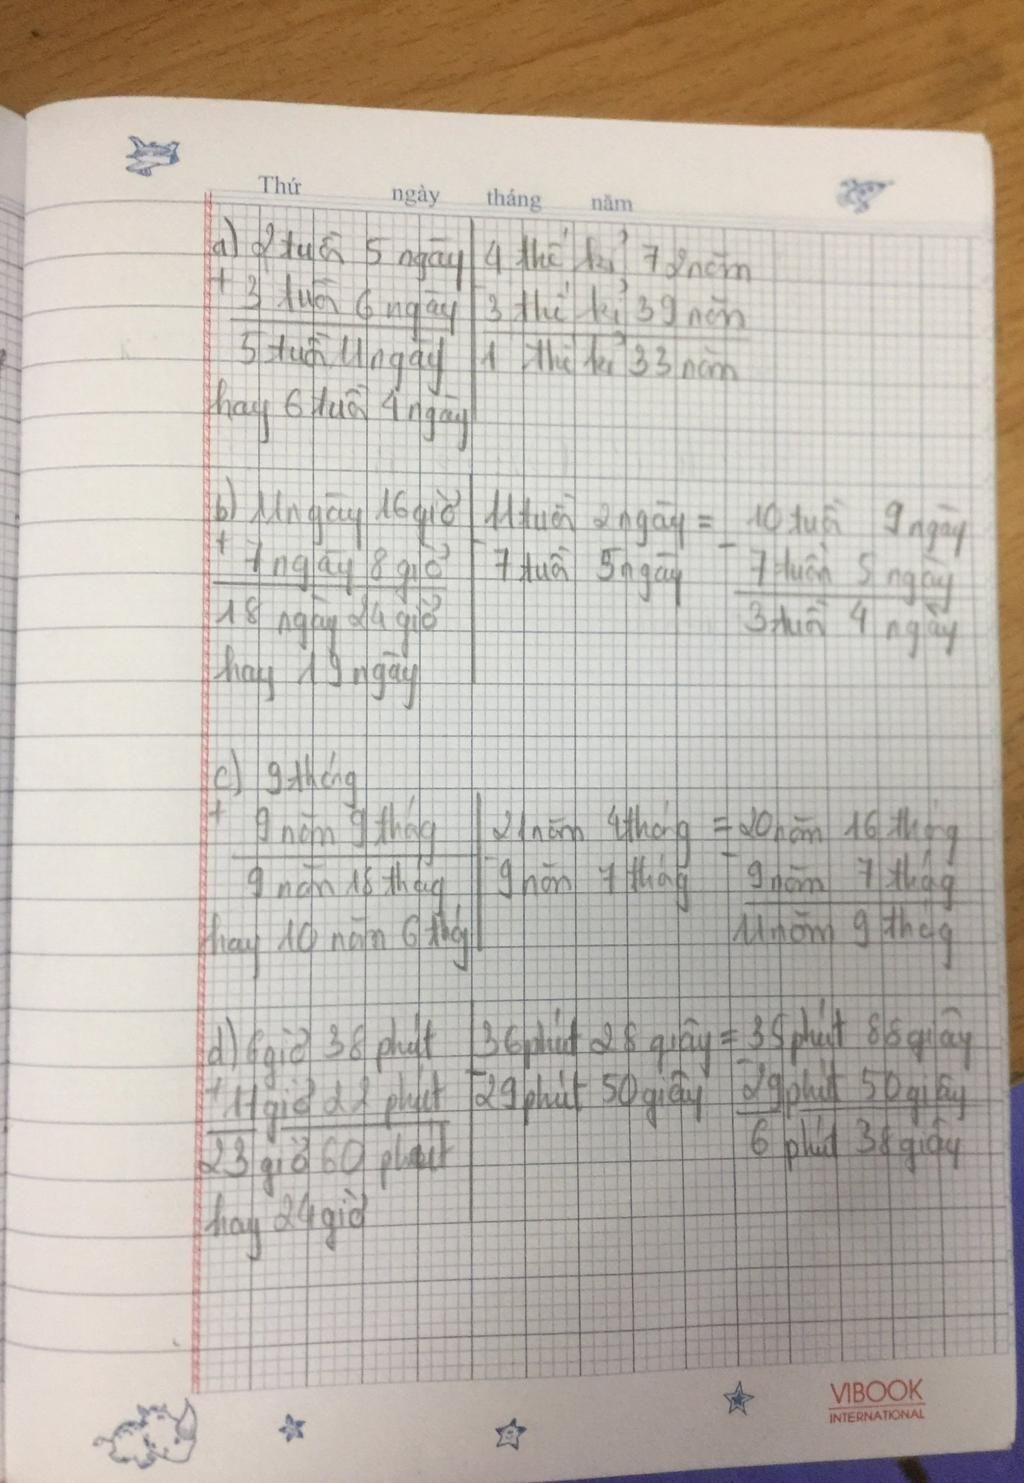 Thứ ngày tháng năm
a) 2 tuần 5 ngày 4 thế kỉ 72 năm
+ 3 tuần 6 ngày 3 thế kỉ 39 năm
5 tuần 11 ngày 1 thế kỉ 33 năm
hay 6 tuần 4 ngày
b) 11 ngày 16 giờ 11 tuần 2 ngày = 10 tuần 9 ngày
+ 7 ngày 8 giờ - 7 tuần 5 ngày - 7 tuần 5 ngày
18 ngày 24 giờ 3 tuần 4 ngày
hay 19 ngày
c) 9 tháng
+ 9 năm 9 thág 21 năm 4 tháng = 20 năm 16 tháng
9 năm 18 thág - 9 năm 7 thág - 9 năm 7 thág
hay 10 năm 6 thág 11 năm 9 thág
d) giờ 38 phút 36 phút 28 giây = 35 phút 88 giây
+ 11 giờ 22 phút - 29 phút 50 giây - 29 phút 50 giây
23 giờ 60 phút 6 phút 38 giây
hay 24 giờ
VIBOOK
INTERNATIONAL